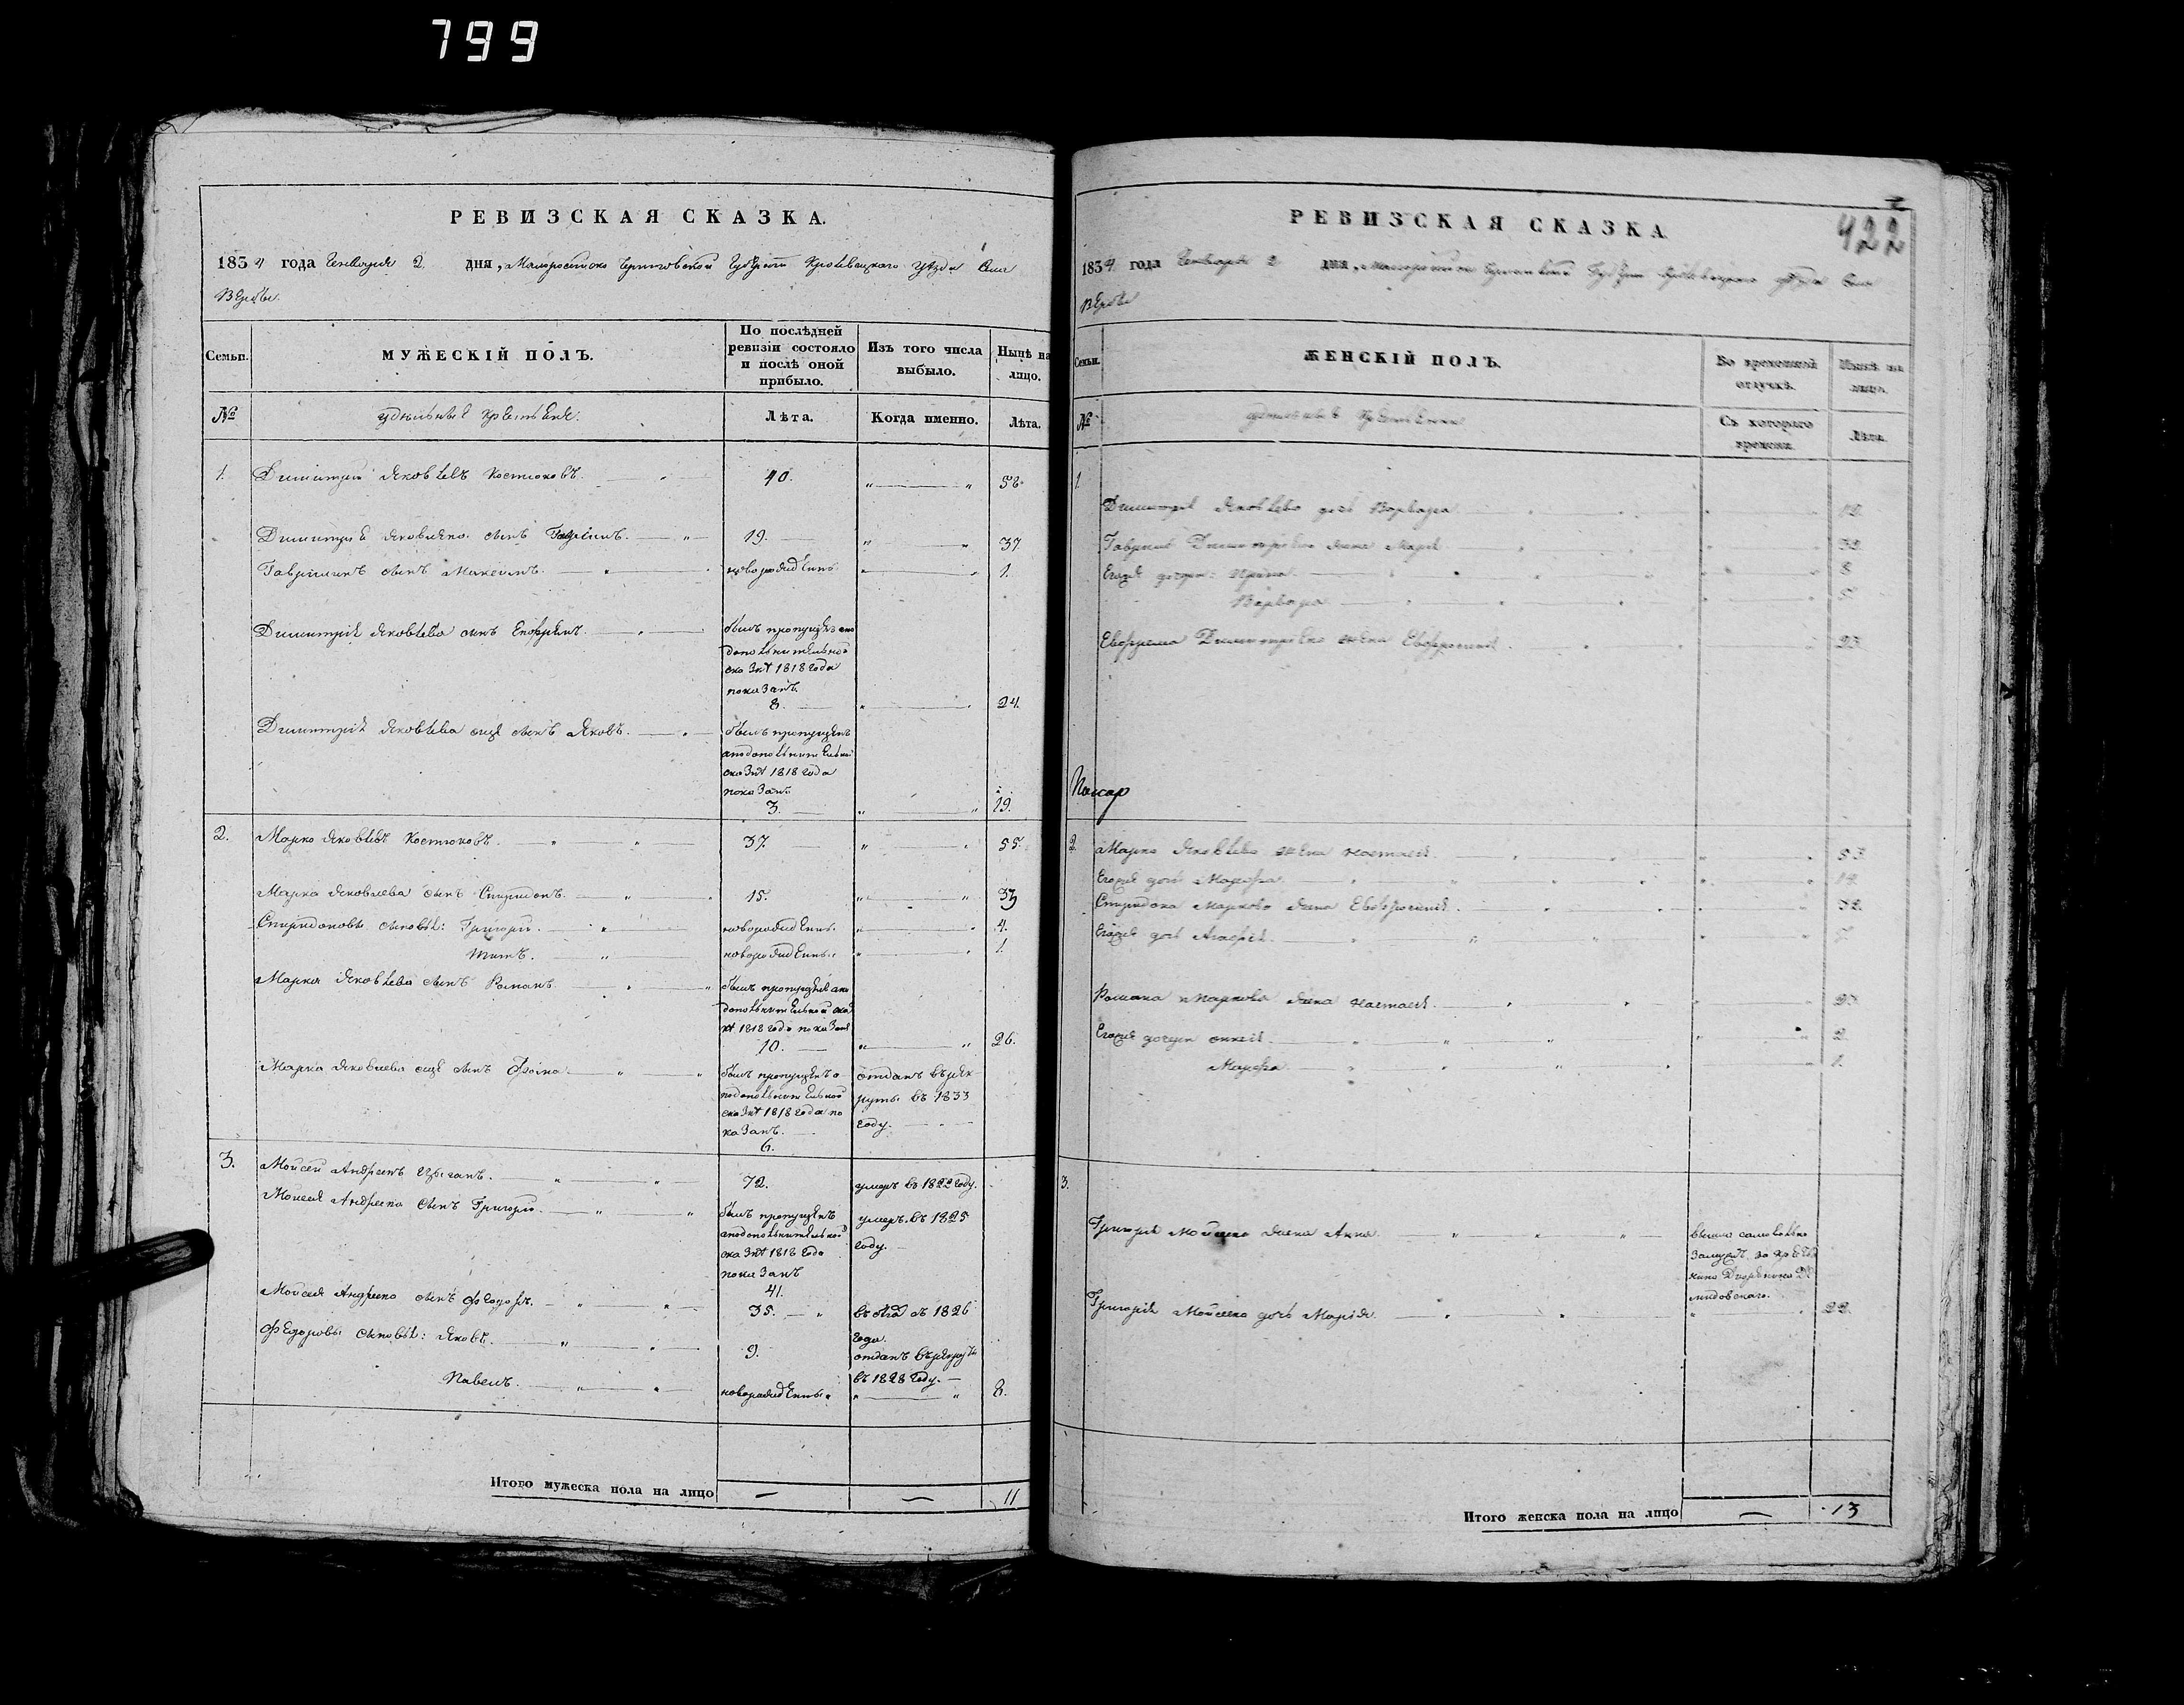 799
РЕВИЗСКАЯ СКАЗКА.
1834 года Генваря 2 дня, Малороссійско Черниговской Губерніи Кролевецкаго Уѣзда Села
Вербы.
Семьи.
МУЖЕСКІЙ ПОЛЪ.
По послѣдней ревизіи состояло и послѣ оной прибыло.
Изъ того числа выбыло.
Нынѣ на лицо.
№
Удѣльныя крестьяне.
Лѣта.
Когда именно.
Лѣта.
1. Димитрій Яковлевъ Костюковъ. 40. 58.
Димитрія Яковлева сынъ Гавріилъ. 19. 37
Гавріиловъ сынъ Максимъ. новорожденъ 1.
Димитрія Яковлева сынъ Евфремъ.
былъ пропущенъ а по
дополнительной
сказкѣ 1818 года
показанъ
8. 24.
Димитрія Яковлева еще сынъ Яковъ.
былъ пропущенъ
а по дополнительной
сказкѣ 1818 года
показанъ
3. 19.
2. Марко Яковлевъ Костюковъ. 37. 55.
Марка Яковлева сынъ Спиридонъ. 15. 33
Спиридоновы сыновья: Григорій. новорожденъ. 4.
Титъ. новорожденъ. 1.
Марка Яковлева сынъ Романъ
былъ пропущенъ а по
дополнительной сказ
кѣ 1818 года показанъ
10. 26.
Марка Яковлева еще сынъ Фома
былъ пропущенъ а
по дополнительной
сказкѣ 1818 года по
казанъ.
6.
отданъ въ рек
руты въ 1833
году.
3. Мойсей Андреевъ Цыганъ. 72. умеръ въ 1822 году.
Мойсея Андреева сынъ Григорій.
былъ пропущенъ
а по дополнительной
сказкѣ 1818 года
показанъ
41.
умеръ въ 1825
году.
Мойсея Андреева сынъ Федоръ. 35. въ съ 1826
года.
Федоровы сыновья: Яковъ. 9. отданъ въ рекруты
въ 1828 году.
Павелъ. новорожденъ 8.
Итого мужеска пола на лицо 11
422
РЕВИЗСКАЯ СКАЗКА
1834 года Генваря 2 дня, Малороссійско Черниговской Губерніи Кролевецкаго уѣзда Села
Вербы
Семьи.
ЖЕНСКІЙ ПОЛЪ.
Во временной отлучкѣ.
Нынѣ на лицо.
№
Удѣльныя крестьянки
Съ котораго времени.
Лѣта.
1
Димитрія Яковлева дочь Варвара
Гавріила Димитріева жена Марія
Егожъ дочери: Ирина 8
Варвара 5
Евфрема Димитріева жена Евфросинія 23
2. Марка Яковлева жена Настасія. 53.
Егожъ дочь Марфа.
Спиридона Маркова жена Евфросинія 32.
Егожъ дочь
Романа Маркова жена Настасія
Егожъ дочери 2
Марфа 1.
3.
Григорія Мойсеева жена Анна
вышла самовольно
замужъ за
Григорія Мойсеева дочь Марія. 22.
Итого женска пола на лицо 13